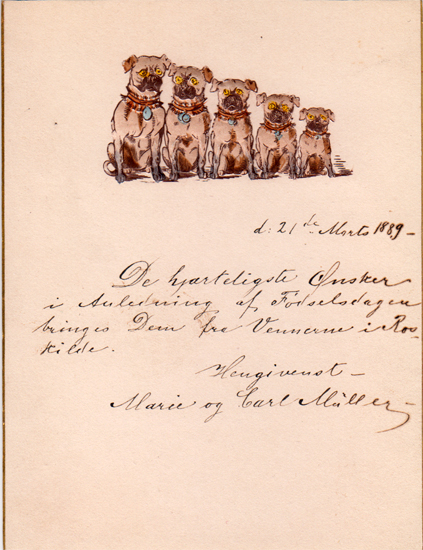 d: 21de Marts 1889-
De hjærteligste Ønsker
i Anledning af Fødselsdagen
bringes Dem fra Vennerne i Ros-
kilde.
Hengivenst-
Marie og Carl Müller-